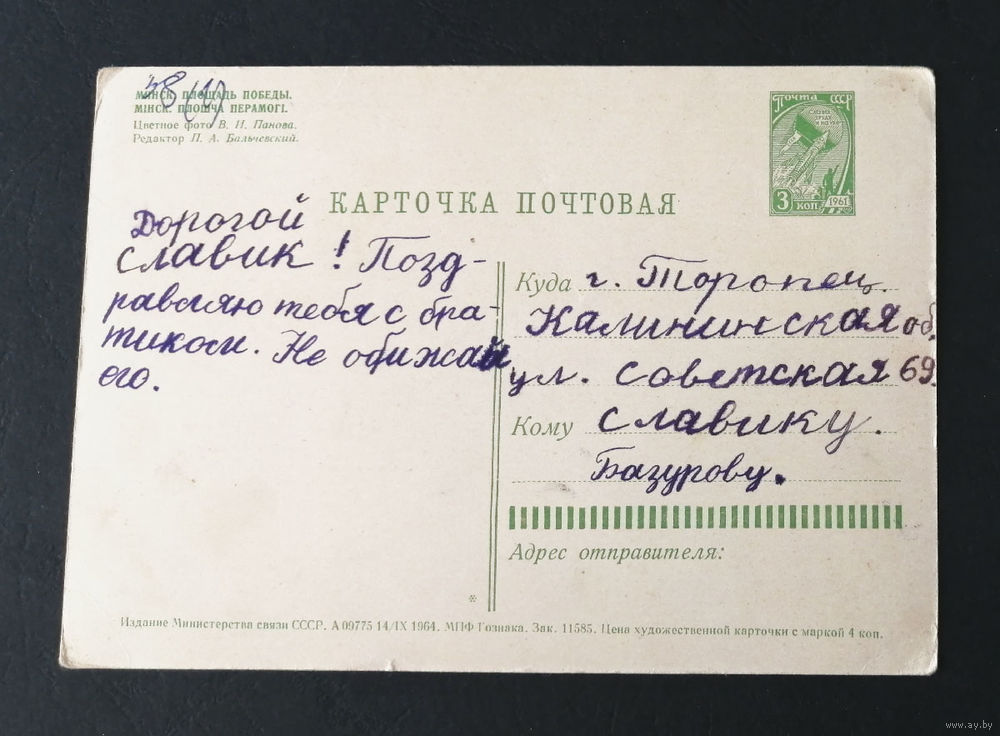 58(4)
МИНСК. ПЛОЩАДЬ ПОБЕДЫ.
МІНСК. ПЛОШЧА ПЕРАМОГІ.
Цветное фото В. И. Панова.
Редактор П. А. Бальчевский.
Почта СССР
СЛАВА
ТРУДУ
И НАУКЕ
3 коп.
1961
КАРТОЧКА ПОЧТОВАЯ
Дорогой
славик! Позд-
равляю тебя с бра-
тиком. Не обижай
его.
Куда г. Торопец.
Калининская об.
ул. советская 69.
Кому славику.
Базурову.
Адрес отправителя:
*
Издание Министерства связи СССР. А 09775 14/IX 1964. МПФ Гознака. Зак. 11585. Цена художественной карточки с маркой 4 коп.
www.ay.by